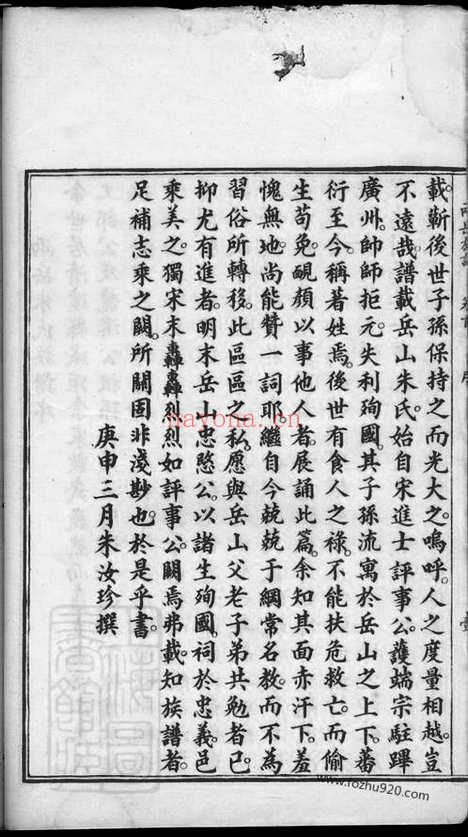 載蘄後世子孫保持之而光大之嗚呼人之度量相越豈
不遠哉譜載岳山朱氏始自宋進士評事公護端宗駐蹕
廣州帥師拒元失利殉國其子孫流寓於岳山之上下蕃
衍至今稱著姓焉後世有食人之祿不能扶危救亡而偷
生苟免靦顏以事他人者展誦此篇余知其面赤汗下羞
愧無地尚能贊一詞耶繼自今兢兢于綱常名教而不為
習俗所轉移此區區之私願與岳山父老子弟共勉者已
抑尤有進者明末岳山忠愍公以諸生殉國祠於忠義邑
乘美之獨宋末轟轟烈烈如評事公闕焉弗載知族譜者
足補志乘之闕所關固非淺尠也於是乎書
庚申三月朱汝珍撰
nayona.cn
www.fozhu920.com